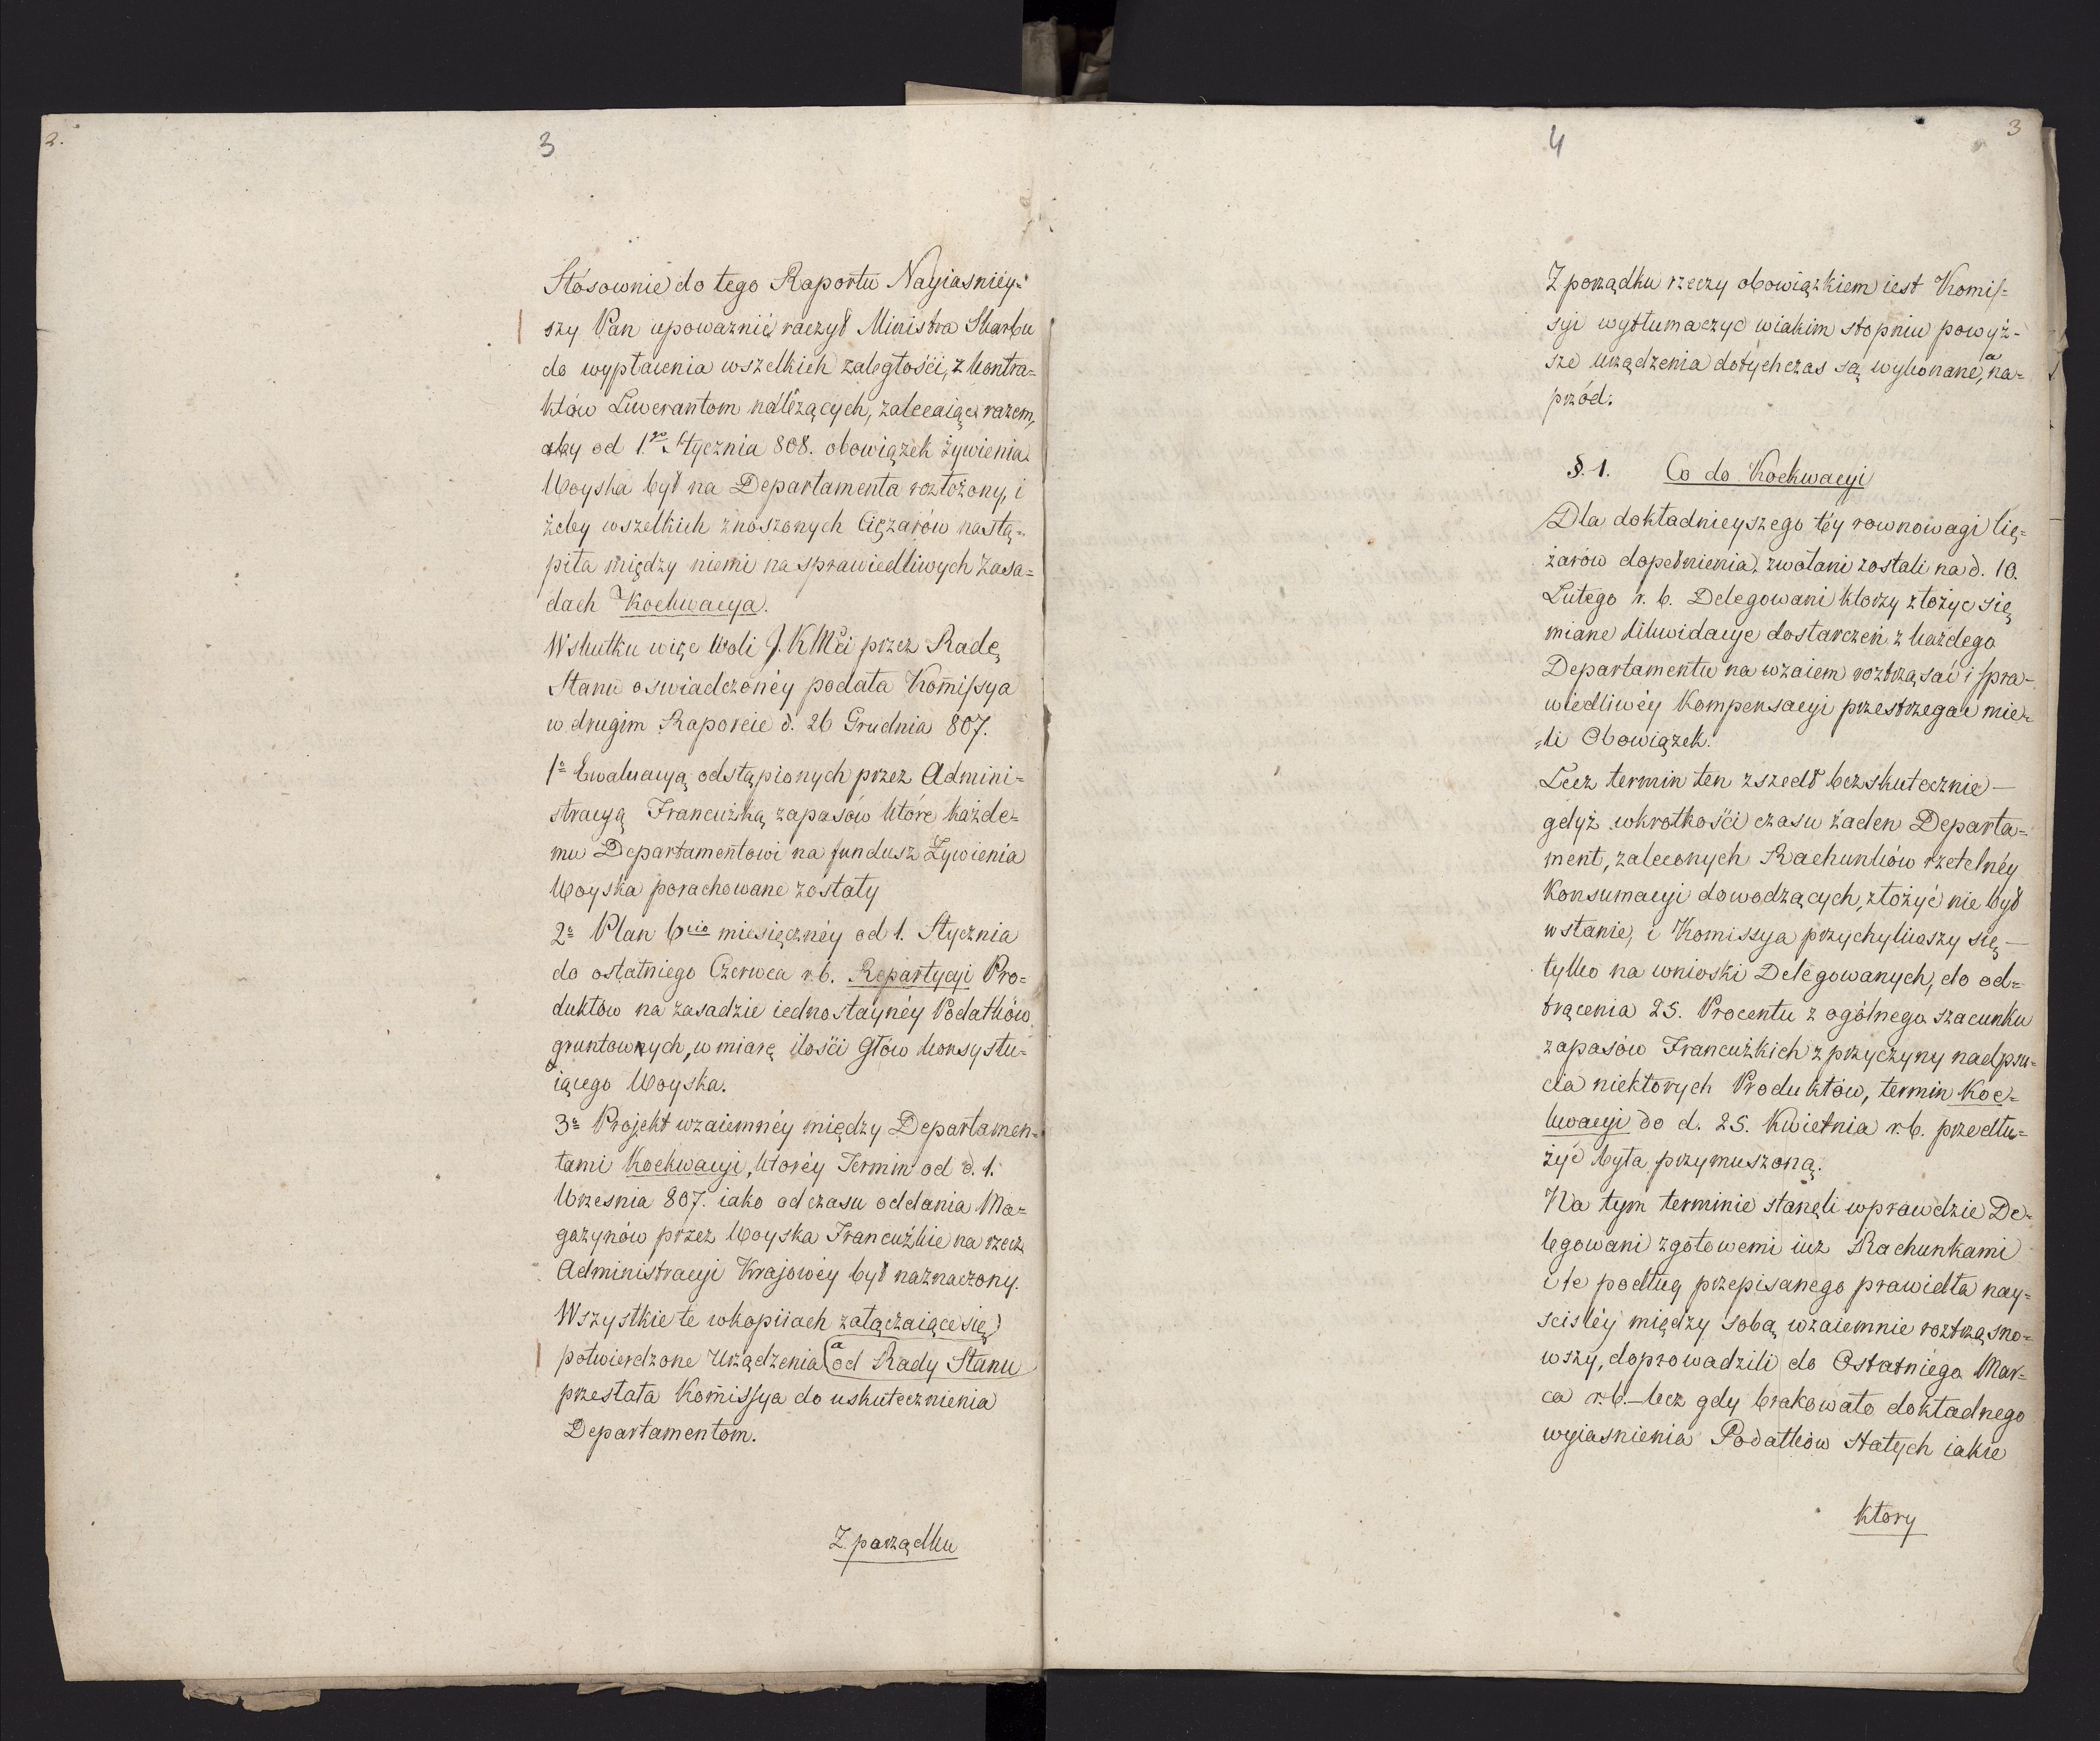 2.
3
Stósownie do tego Raportu Nayiasniéy-
szy Pan upoważnić raczył Ministra Skarbu
do wypłacenia wszelkich zaległości, z kontra=
któw Liwerantom należących, zalecaiąc razem,
aby od 1go Stycznia 808. obowiązek żywienia
Woyska był na Departamenta rozłożony, i
żeby wszelkich znoszonych Ciężarów nastą=
piła między niemi na sprawiedliwych zasa=
dach Koekwacya.
Wskutku więc Woli J. K Mći przez Radę
Stanu oswiadczonéy podała Kommissya
w drugim Raporcie d. 26 Grudnia 807.
1o Ewaluacyą odstąpionych przez Admini=
stracyą Francuzką zapasów które każde=
mu Departamentowi na fundusz Żywienia
Woyska porachowane zostały
2o Plan 6cio miesięcznéy od 1. Stycznia
do ostatniego Czerwca r. b. Repartycyi Pro=
duktów na zasadzie iednostaynéy Podatków
gruntownych, w miarę ilości Głów konsystu=
iącego Woyska.
3o Projekt wzaiemnéy między Departamen=
tami Koekwacyi, któréy Termin od d. 1.
Września 807. iako od czasu oddania Ma=
gazynów przez Woyska Francuzkie na rzecz
Administracyi Krajowéy był naznaczony.
Wszystkie te w kopiiach załączaiące się
potwierdzone Urządzenia a od Rady Stanu
przesłała Kommissya do uskutecznienia
Departamentom.
Z porządku
4
3
Z porządku rzeczy obowiązkiem iest Komis=
syi wytłumaczyć w iakim stopniu powyż=
sze urządzenia dotychczas są wykonane, a na=
przód:
§. 1. Co do Koekwacyi
Dla dokładnieyszego téy rownowagi Cię=
żarów dopełnienia, zwołani zostali na d. 10.
Lutego r. b. Delegowani ktorzy złożyć się
miane Likwidacye dostarczeń z każdego
Departamentu nawzaiem roztrząsać i spra=
wiedliwéy Kompensacyi przestrzegać mie=
=li Obowiązek.
Lecz termin ten zszedł bezskutecznie —
gdyż w krotkości czasu żaden Departa=
ment, zaleconych Rachunków rzetelnéy
Konsumacyi dowodzących, złożyć nie był
w stanie, i Komissya przychyliwszy się —
tylko na wnioski Delegowanych, do od=
trącenia 25. Procentu z ogólnego szacunku
zapasów Francuzkich z przyczyny nadpsu=
cia niektorych Produktów, termin Koe=
kwacyi do d. 25. Kwietnia r. b. przedłu=
żyć była przymuszoną.
Na tym terminie stanęli wprawdzie De=
legowani z gotowemi iuż Rachunkami
i te podług przepisanego prawidła nay=
scisléy między sobą wzaiemnie roztrząsno=
wszy, doprowadzili do Ostatniego Mar=
ca r. b. — lecz gdy brakowało dokładnego
wyiasnienia Podatków Stałych iakie
ktory